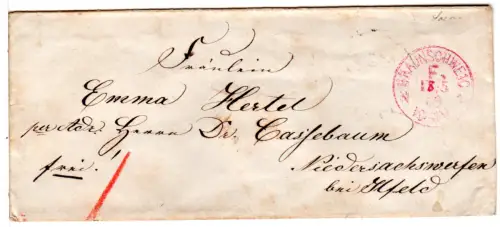 BRAUNSCHWEIG
Fräulein
Emma Hertel
per Adr. Herrn Dr. Cassebaum
frei!
Niedersachswerfen
bei Ilfeld